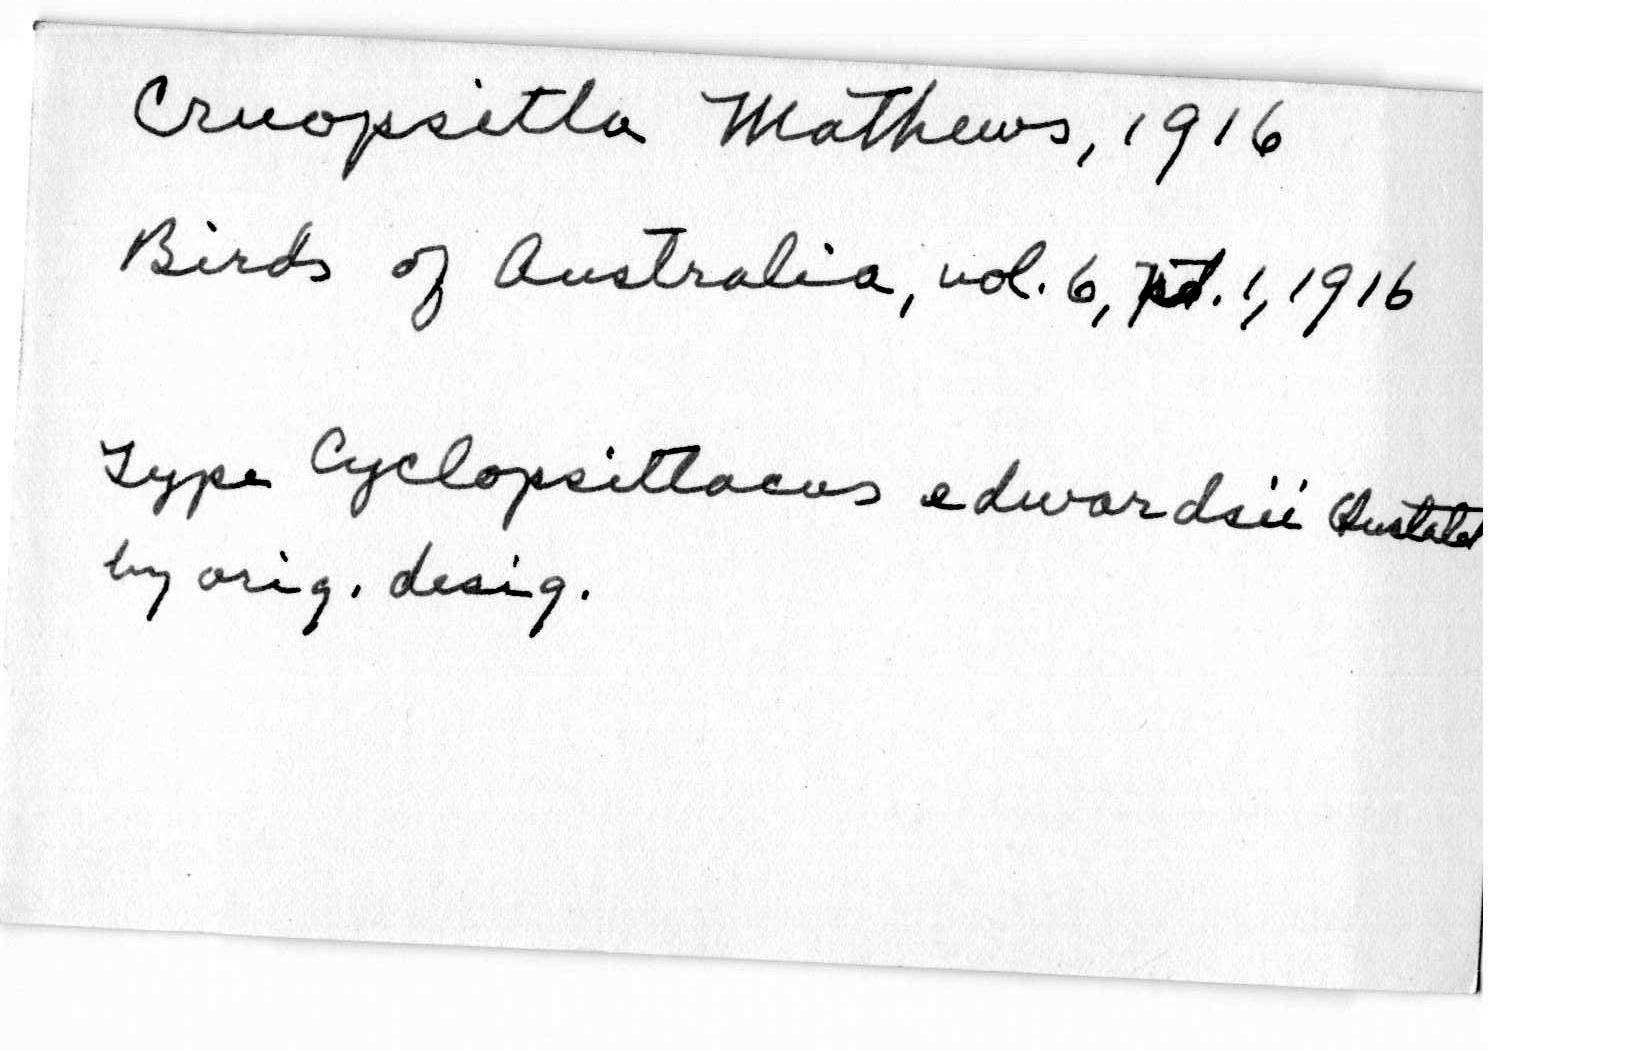 Cruopsitta Mathews, 1916
Birds of Australia, vol. 6, pt. 1, 1916
Type Cyclopsittacus edwardsii Oustalet
by orig. desig.